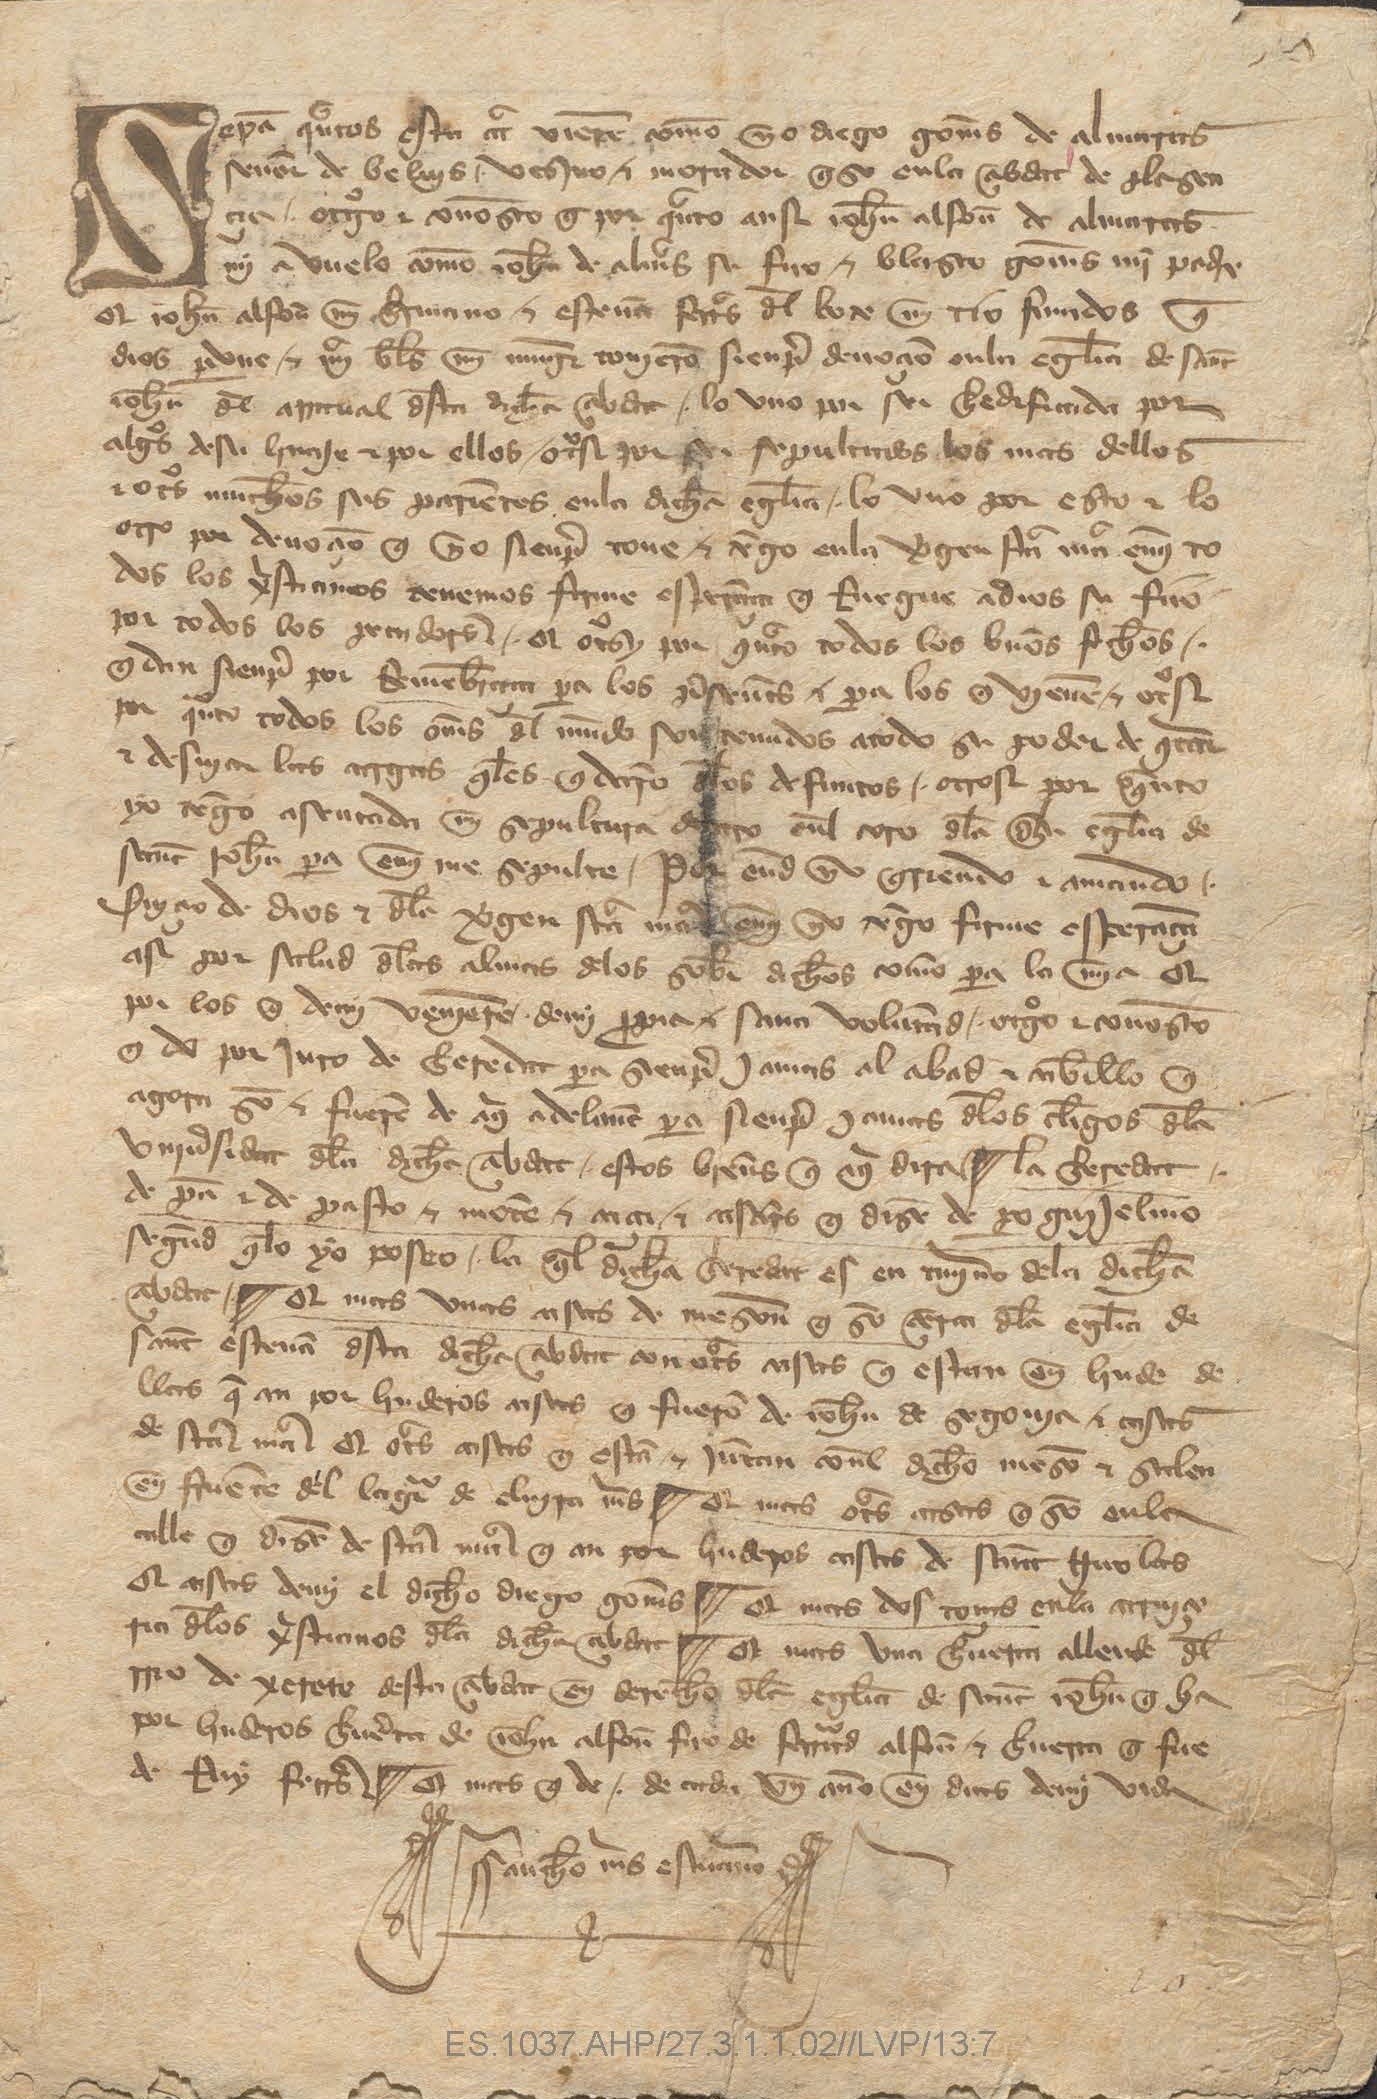 Sepā quātos esta cartª vierē como yo diego gomes de almaras
señor de beluis, vesino & morador que so enla çibdat de plasen
çia. otorgo & conosco q por quāto ansi iohn alfon de almaras
mi avuelo como iohn de almaras su fijo & blasco gomes mi padre
Et iohn alfon mi hermano & esteuā ferrs del bote mi tio finados q
dios perdone, & mª bls mi muger touierō sienpre deuoçiō enla eglia de sant
iohn del arraual desta dicha çibdat. lo vno por ser hedificada por
algos de su linaje & por ellos, otrosi por ser sepultados los mas dellos
& otros muchos sus pariētes enla dicha eglia. lo vno por esto & lo
otro por deuoçiō q yo sienpre toue & tēgo enla virgen stª mª enq to
dos los xpstianos tenemos firme esperāça q Ruegue a dios su fijo
por todos los pecadores. Et otrosy por quāto todos los buēos fechos.
q dan sienpre por Remēbrança pa los presentes & pa los q vienē, & otrosi
por quāto todos los oms del mūdo son tenudos a todo su poder de
& desuiar las cargas qles q dexarō delos defuntos. otrosi por quāto
yo tēgo asentada mi sepultura dentro enl coro dela dicha eglia de
sant iohn pa enq me sepulte, Por ende yo queriendo & amando.
seruiçio de dios & dela virgen stª mª enq yo tēgo firme esperāça
asi por salud delas almas delos sobre dichos como pa la mia Et
por los q de mi venierē. de mi propia & sana volūtad. otorgo & conosco
q do por juro de heredat pa sienpre jamas al abad & cabillo q
agora son & fuerē de aqi adelante pa sienpre jamas delos clerigos dela
vniuersidat dela dicha çibdat. estos bienes q aqi dira la heredat.
de pā & de pasto & monte & caça & casares q disē de po guijelmo
segund qlo yo poseo. la ql dicha heredat es en termino dela dicha
çibdat, Et mas vnas casas de meson q so çerca dela eglia de
sant esteuā desta dicha çibdat con otras casas q estan en linde de
llas q an por linderos casas q fuerō de iohn de segouia & casas
de stª mª Et otras casas q estā & juntan conl dicho mesō & salen
en fruente del logar de eluira ms Et mas otras casas q so enla
calle q disē de stª mª q an por linderos casas de sant Niculas
Et casas de mi el dicho diego gomes Et mas dos tornos enla carniçe
ria delos xpstianos dela dicha çibdat Et mas vna huerta allende del
rrio de xerete desta çibdat en derecho dela eglia de sant iohn q ha
por linderos huerta de iohn alfon fijo de ferrand alfon & huerta q fue
de Ruy ferrs Et mas q de. de cada vn año en dias de mi vida
Sancho ms escriuano
ES.1037.AHP/27.3.1.1.02//LVP/13:7